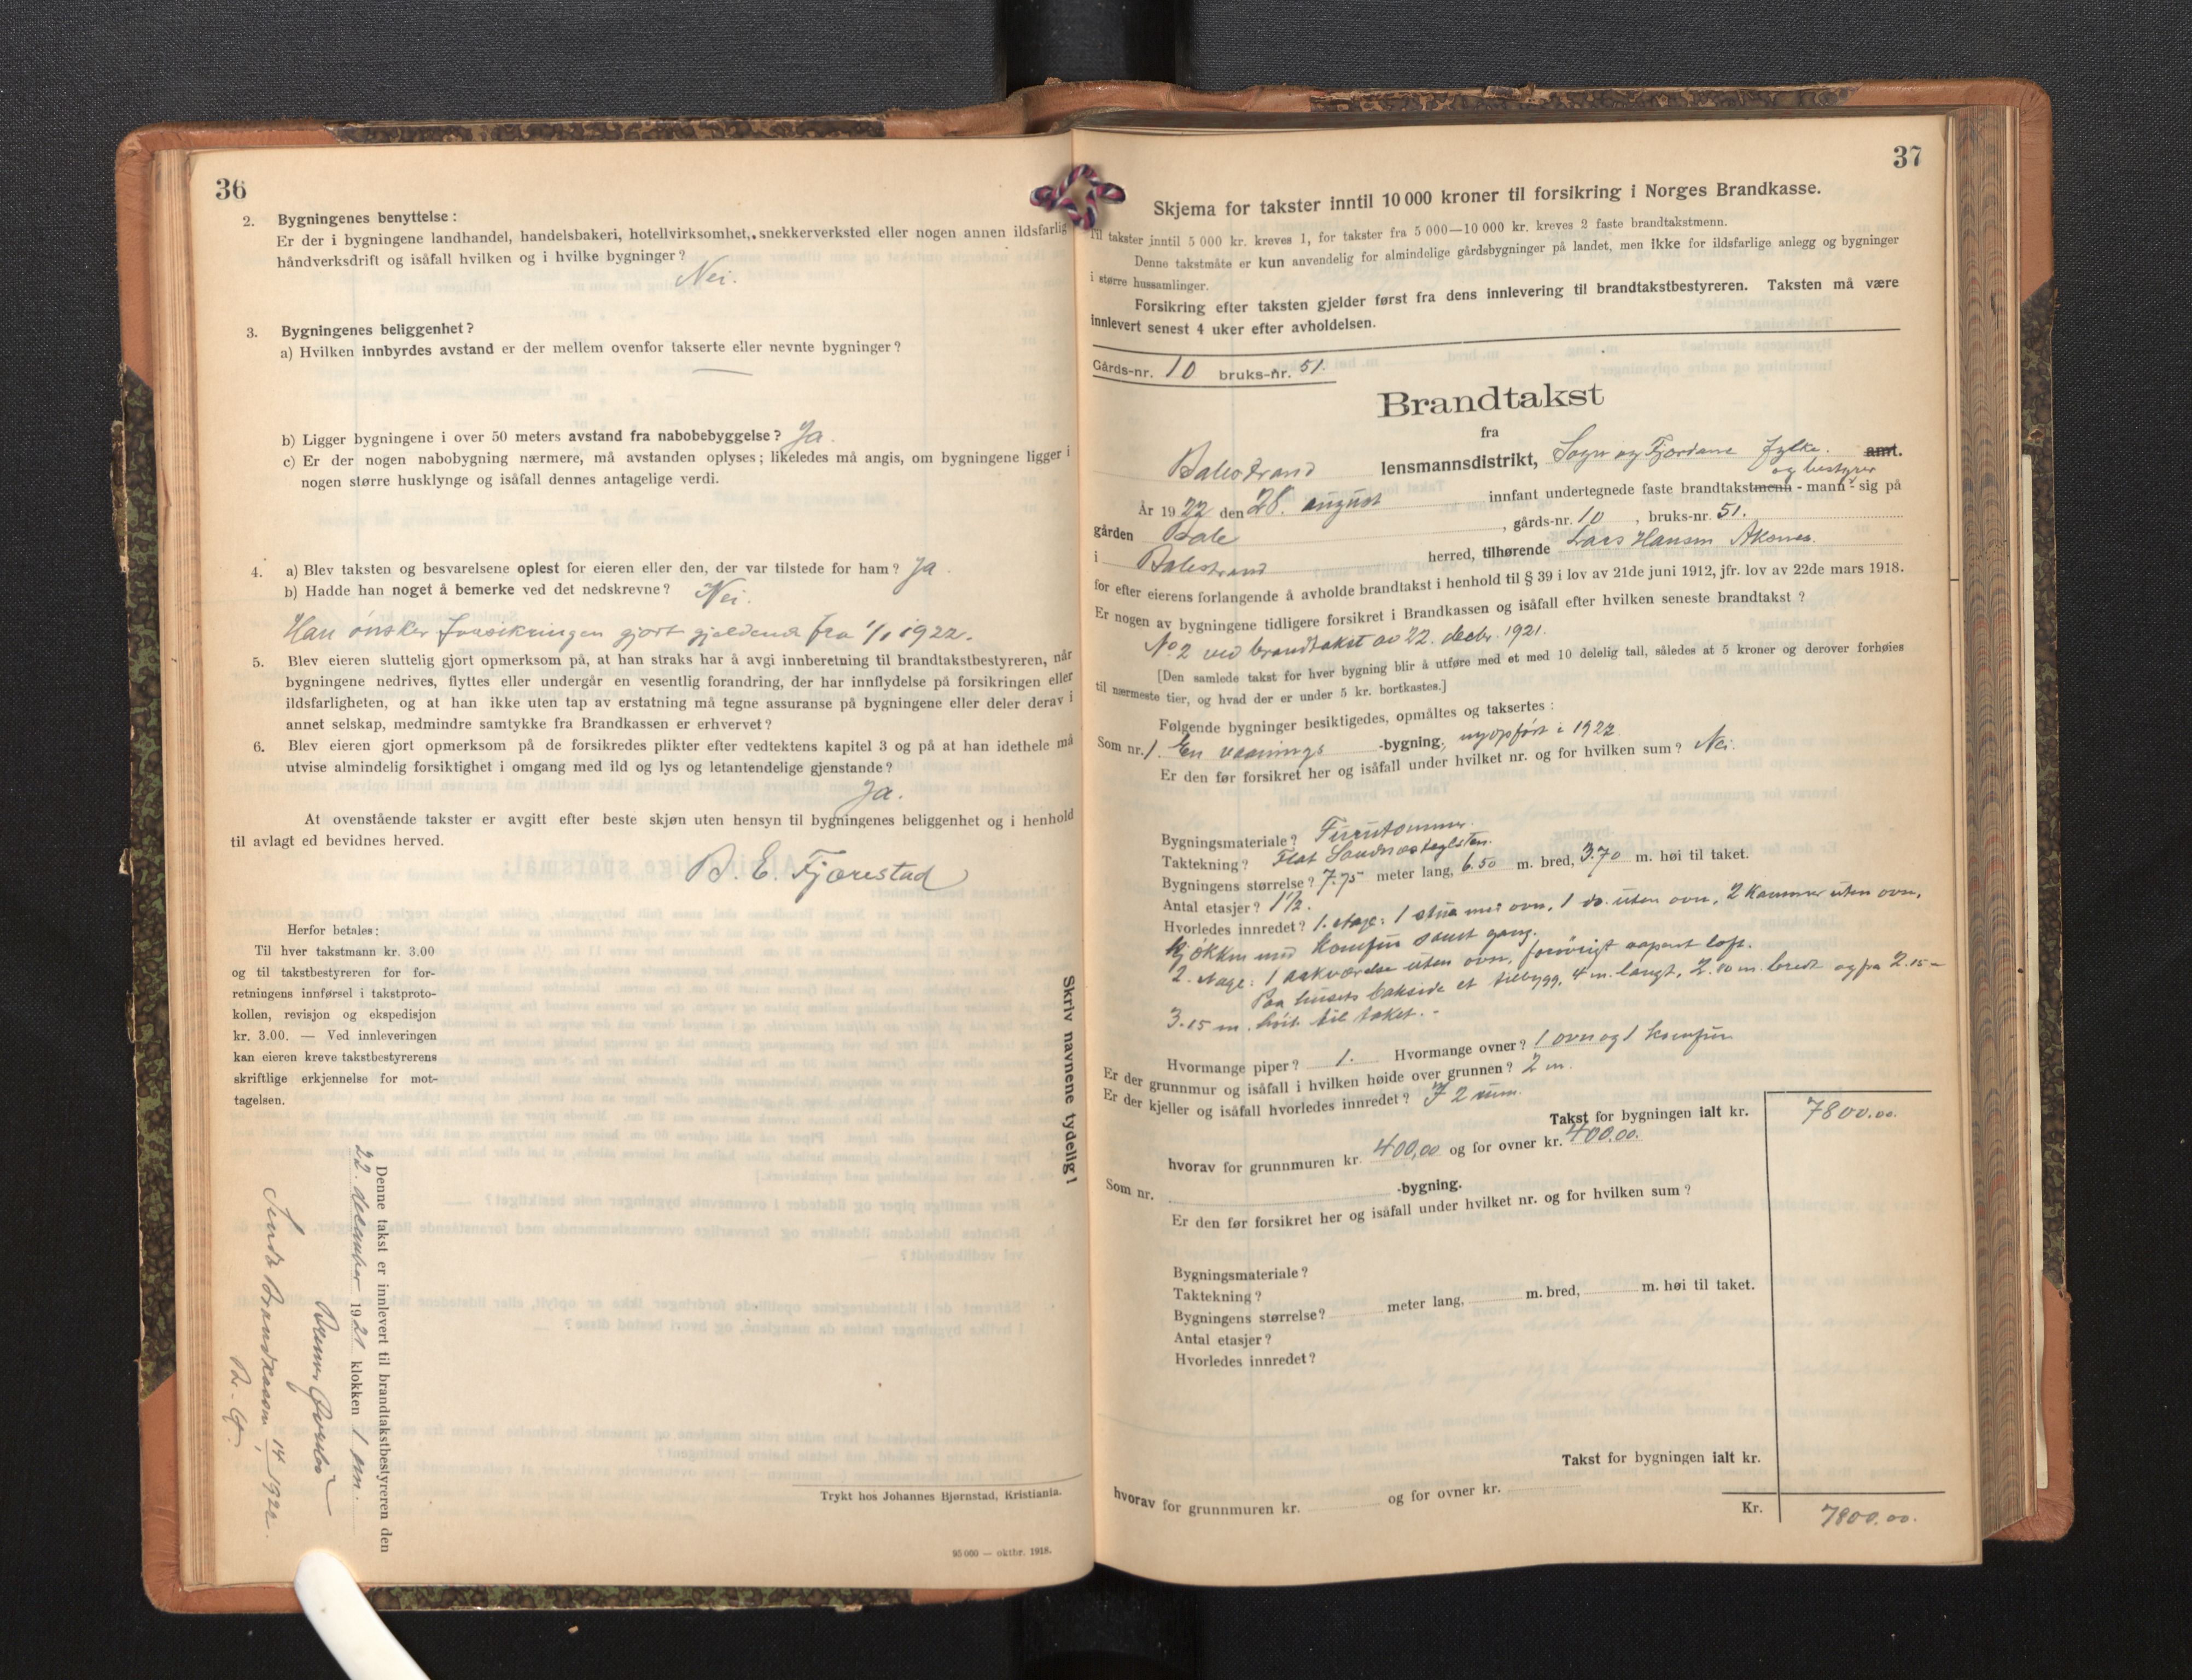 36
2. Bygningenes benyttelse :
Er der i bygningene landhandel, handelsbakeri, hotellvirksomhet, snekkerverksted eller nogen annen ildsfarlig
håndverksdrift og isåfall hvilken og i hvilke bygninger ?
Nei.
3. Bygningenes beliggenhet ?
a) Hvilken innbyrdes avstand er der mellem ovenfor takserte eller nevnte bygninger ?
—
b) Ligger bygningene i over 50 meters avstand fra nabobebyggelse ? Ja.
c) Er der nogen nabobygning nærmere, må avstanden oplyses ; likeledes må angis, om bygningene ligger i
nogen større husklynge og isåfall dennes antagelige verdi.
4. a) Blev taksten og besvarelsene oplest for eieren eller den, der var tilstede for ham ? Ja
b) Hadde han noget å bemerke ved det nedskrevne ? Nei.
Han ønsker forsikringen gjort gjeldende fra 1/1 1922.
5. Blev eieren sluttelig gjort opmerksom på, at han straks har å avgi innberetning til brandtakstbestyreren, når
bygningene nedrives, flyttes eller undergår en vesentlig forandring, der har innflydelse på forsikringen eller
ildsfarligheten, og at han ikke uten tap av erstatning må tegne assuranse på bygningene eller deler derav i
annet selskap, medmindre samtykke fra Brandkassen er erhvervet ?
6. Blev eieren gjort opmerksom på de forsikredes plikter efter vedtektens kapitel 3 og på at han idethele må
utvise almindelig forsiktighet i omgang med ild og lys og letantendelige gjenstande ?
Ja.
At ovenstående takster er avgitt efter beste skjøn uten hensyn til bygningenes beliggenhet og i henhold
til avlagt ed bevidnes herved.
B. E. Fjærestad
Herfor betales :
Til hver takstmann kr. 3.00
og til takstbestyreren for for-
retningens innførsel i takstproto-
kollen, revisjon og ekspedisjon
kr. 3.00. — Ved innleveringen
kan eieren kreve takstbestyrerens
skriftlige erkjennelse for mot-
tagelsen.
Skriv navnene tydelig !
Denne takst er innlevert til brandtakstbestyreren den
22. desember 1921 klokken 1 em.
Sendt Brandkassen 14/1 1922.
Trykt hos Johannes Bjørnstad, Kristiania.
95 000 — oktbr. 1918.
37
Skjema for takster inntil 10 000 kroner til forsikring i Norges Brandkasse.
Til takster inntil 5 000 kr. kreves 1, for takster fra 5 000—10 000 kr. kreves 2 faste brandtakstmenn.
Denne takstmåte er kun anvendelig for almindelige gårdsbygninger på landet, men ikke for ildsfarlige anlegg og bygninger
i større hussamlinger.
Forsikring efter taksten gjelder først fra dens innlevering til brandtakstbestyreren. Taksten må være
innlevert senest 4 uker efter avholdelsen.
Gårds-nr. 10 bruks-nr. 51.
Brandtakst
fra
Balestrand lensmannsdistrikt, Sogn og Fjordane fylke. amt.
og bestyrer
År 1922 den 28. august innfant undertegnede faste brandtakstmenn - mann - sig på
gården Bale, gårds-nr. 10, bruks-nr. 51.
i Balestrand herred, tilhørende Lars Hansen
for efter eierens forlangende å avholde brandtakst i henhold til § 39 i lov av 21de juni 1912, jfr. lov av 22de mars 1918.
Er nogen av bygningene tidligere forsikret i Brandkassen og isåfall efter hvilken seneste brandtakst ?
No 2 ved brandtakst av 22. decbr. 1921.
[Den samlede takst for hver bygning blir å utføre med et med 10 delelig tall, således at 5 kroner og derover forhøies
til nærmeste tier, og hvad der er under 5 kr. bortkastes.]
Følgende bygninger besiktigedes, opmåltes og taksertes :
Som nr. 1. En vaanings -bygning, nyopført i 1922
Er den før forsikret her og isåfall under hvilket nr. og for hvilken sum ? Nei.
Bygningsmateriale ? Furutømmer.
Taktekning ? Flat Sandnæsteglsten.
Bygningens størrelse ? 7.75 meter lang, 6.50 m. bred, 3.70 m. høi til taket.
Antal etasjer ? 1 1/2.
Hvorledes innredet ? 1. etage: 1 stua med ovn, 1 do. uten ovn, 2 kammer uten ovn,
kjøkken med komfur samt gang.
2. etage: 1 arkværelse uten ovn, forøvrigt aapent loft.
Paa husets bakside et tilbygg, 4 m. langt, 2.80 m. bredt og fra 2.15 -
3.15 m. høit til taket. -
Hvormange piper ? 1. Hvormange ovner ? 1 ovn og 1 komfur
Er der grunnmur og isåfall i hvilken høide over grunnen ? 2 m.
Er der kjeller og isåfall hvorledes innredet ? I 2 rum.
Takst for bygningen ialt kr. 7800.00.
hvorav for grunnmuren kr. 400,00 og for ovner kr. 400.00.
Som nr. -bygning.
Er den før forsikret her og isåfall under hvilket nr. og for hvilken sum ?
Bygningsmateriale ?
Taktekning ?
Bygningens størrelse ? meter lang, m. bred, m. høi til taket.
Antal etasjer ?
Hvorledes innredet ?
Takst for bygningen ialt kr.
hvorav for grunnmuren kr. og for ovner kr.
Kr. 7800.00.